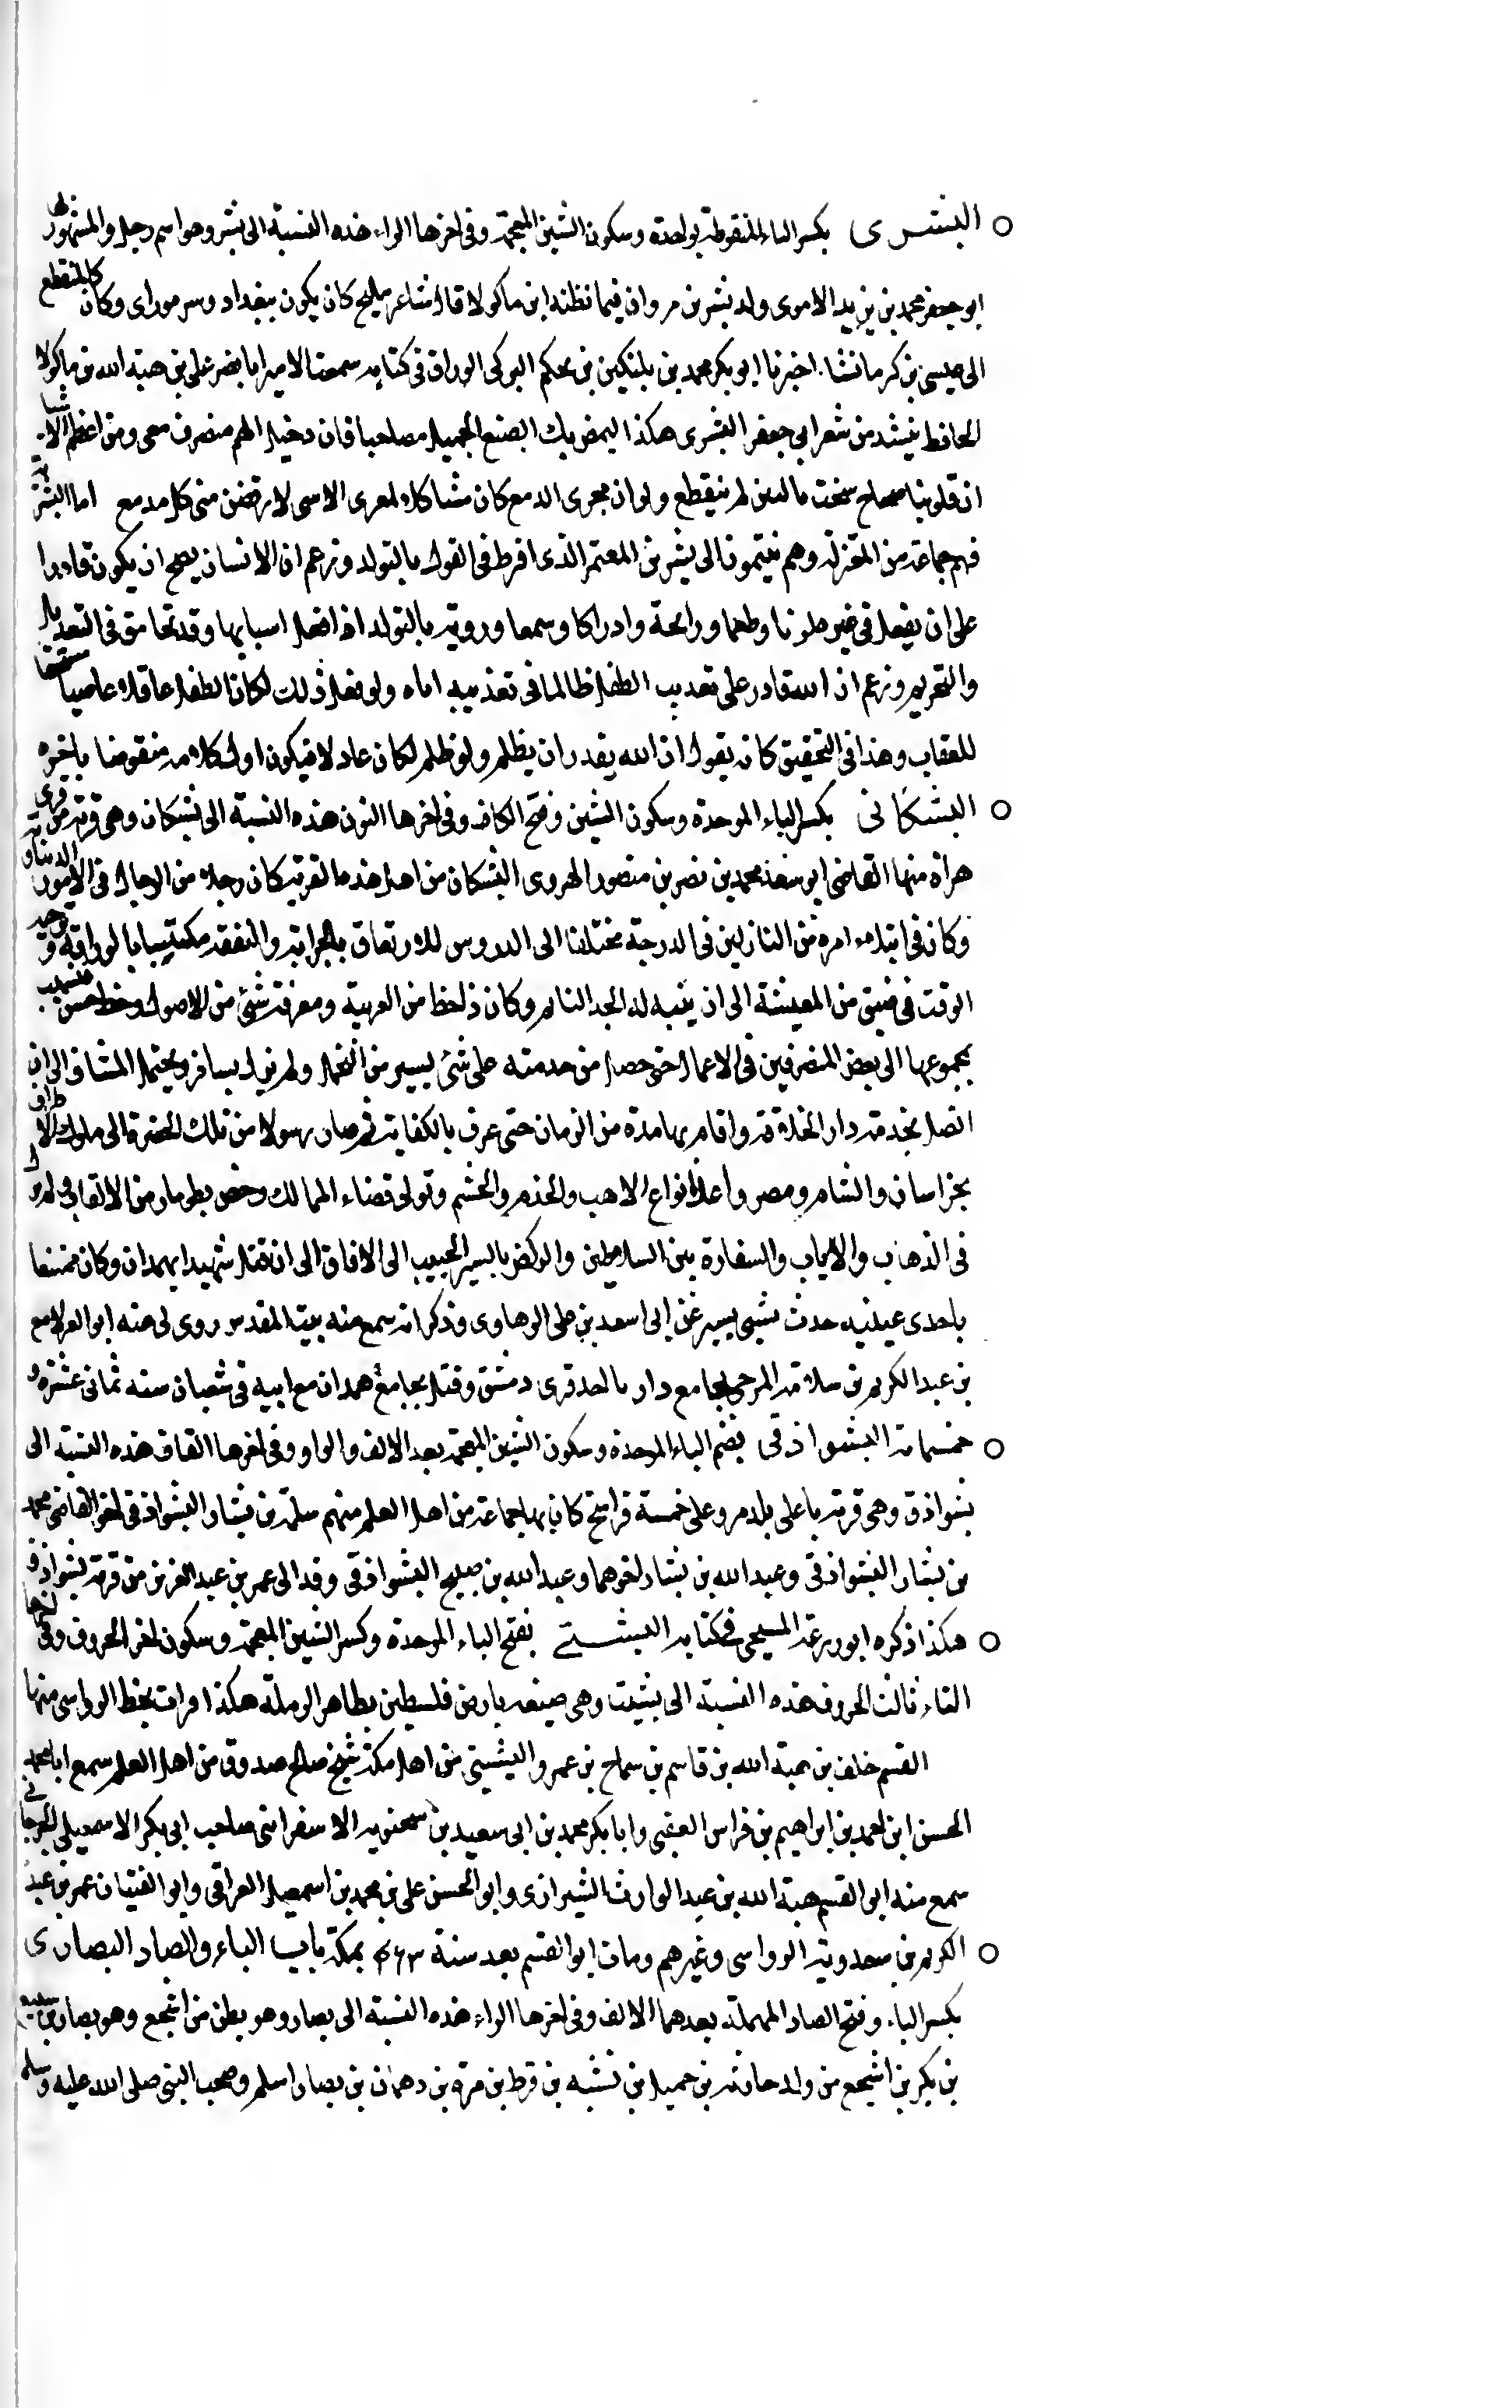 البشرى بكسر الباء المنقوطة بواحدة وسكون الشين المعجمة وفى اخرها الراء هذه النسبة الى بشر وهو اسم رجل والمشهور بها
ابو جعفر محمد بن يزيد الاموى ولد بشر بن مروان فيما نظنه ابن ماكولا قال شاعر مليح كان يكون ببغداد وسر من راى وكان كالمنقطع
الى عيسى بن كرمانشا. اخبرنا ابو بكر محمد بن بلتكين بن بحكم البركى الوراق فى كتابه سمعت الامير ابا نصر على بن هبة الله بن ماكولا
الحافظ ينشد من شعر ابى جعفر البشرى هكذا ليمض بك الصنع الجميل مصاحبا فان دخيل الهم منصرف معى ومن اعظم الاشيا
ان قلوبنا صحاح سخت بالبين لم يتقطع ولو ان مجرى الدمع كان مشاكلا لمجرى الاسى لا رفضن منى كل مدمع اما البشرية
فهم جماعة من المعتزلة وهم ينتمون الى بشر بن المعتمر الذى افرط فى القول بالتولد وزعم ان الانسان يصح ان يكون قادرا
على ان يفعل فى غيره لونا وطعما ورائحة وادراكا وسمعا وروية بالتولد اذا فعل اسبابها وقد تحامق فى التعديل
والتجوير وزعم ان الله قادر على تعذيب الطفل ظالما فى تعذيبه اياه ولو فعل ذلك لكان الطفل عاقلا عاصيا مستحقا
للعقاب وهذا فى التحقيق كانه يقول ان الله يقدر ان يظلم ولو ظلم لكان عادلا فيكون اول كلامه منقوضا باخيره
البشكانى بكسر الباء الموحدة وسكون الشين وفتح الكاف وفى اخرها النون هذه النسبة الى بشكان وهى قرية من قرى
هراة منها القاضى ابو سعد محمد بن نصر بن منصور الهروى البشكان من اهل هذه القرية كان رجلا من الرجال فى الامور الدنياوية
وكان فى ابتداء امره من النازلين فى الدرجة مختلفا الى الدروس للارتفاق بالجراية والتفقه مكتسبا بالوراقة وتوجيه
الوقت فى ضيق من المعيشة الى ان ينبه له الجد النايم وكان ذا حظ من العربية ومعرفة شئ من الاصول وخط حسن
بمجموعها الى بعض المتصرفين فى الاعمال حتى حصل من خدمته على شئ يسير من التجمل ولم يزل يسافر ويحتمل المشاق الى ان
اتصل بخدمة دار الخلافة واقام بها مدة من الزمان حتى عرف بالكفاية ثم صار رسولا من تلك الحضرة الى ملوك الاطراف
بخراسان والشام ومصر واعد انواع الاهب والخدم والحشم وتولى قضاء الممالك وخص بطومار من الالقاب ولم يزل
فى الذهاب والاياب والسفارة بين السلاطين والركض بالسير الخبيب الى الافاق الى ان قتل شهيدا بهمدان وكان ممتنعا
باحدى عينيه حدث بشىء يسير عن ابى اسعد بن على الرهاوى وذكر انه سمع منه ببيت المقدس روى لى عنه ابو العلا مع
بن عبد الكريم بن سلامة المرجى بجامع داريا احد قرى دمشق وقتل بجامع همدان مع ابنه فى شعبان سنه ثمانى عشرة و
خمسمائة البشواذقى بضم الباء الموحدة وسكون الشين المعجمة بعد الالف والواو وفى اخرها القاف هذه النسبة الى
بشواذق وهى قرية باعلى بلد مرو على خمسة فراسخ كان بها جماعة من اهل العلم منهم سلمة بن بشار البشواذقى اخو القاضى محمد
بن بشار البشواذقى وعبد الله بن بشار اخوهما وعبد الله بن صليح البشواذقى وفد الى عمر بن عبد العزيز من قرية بشواذق
هكذا ذكره ابو زرعة المسيحى فى كتابه البشتى بفتح الباء الموحدة وكسر الشين المعجمة وسكون اخر الحروف وفى اخرها
التاء ثالث الحروف هذه النسبة الى بشيت وهى ضيعة بارض فلسطين بظاهر الرملة هكذا قرات بخط الرواسى منها
القسم خلف بن هبة الله بن قاسم بن سماح بن عمرو البشيتى من اهل مكة شيخ صالح صدوق من اهل العلم سمع ابا محمد
الحسن ابن احمد بن ابراهيم بن فراس العبقسى وابا بكر محمد بن ابى سعيد بن سختويه الاسفراينى صاحب ابى بكر الاسمعيلى الجرجانى
سمع منه ابو القسم هبة الله بن عبد الوارث الشيرازى وابو الحسن على بن محمد بن اسمعيل العراقى وابو الفتيان عمر بن عبد
الكريم بن سعدويه الرواسى وغيرهم ومات ابو القسم بعد سنة ٤٦٣ بمكة باب الباء والصاد البصارى
بكسر الباء وفتح الصاد المهملة بعدهما الالف وفى اخرها الراء هذه النسبة الى بصار وهو بطن من اشجع وهو بصار بن سبيع
بن بكر بن اشجع من ولد حارثة بن حميل بن نشبه بن قرط بن مرة بن دهمان بن بصار اسلم وصحب النبى صلى الله عليه وسلم